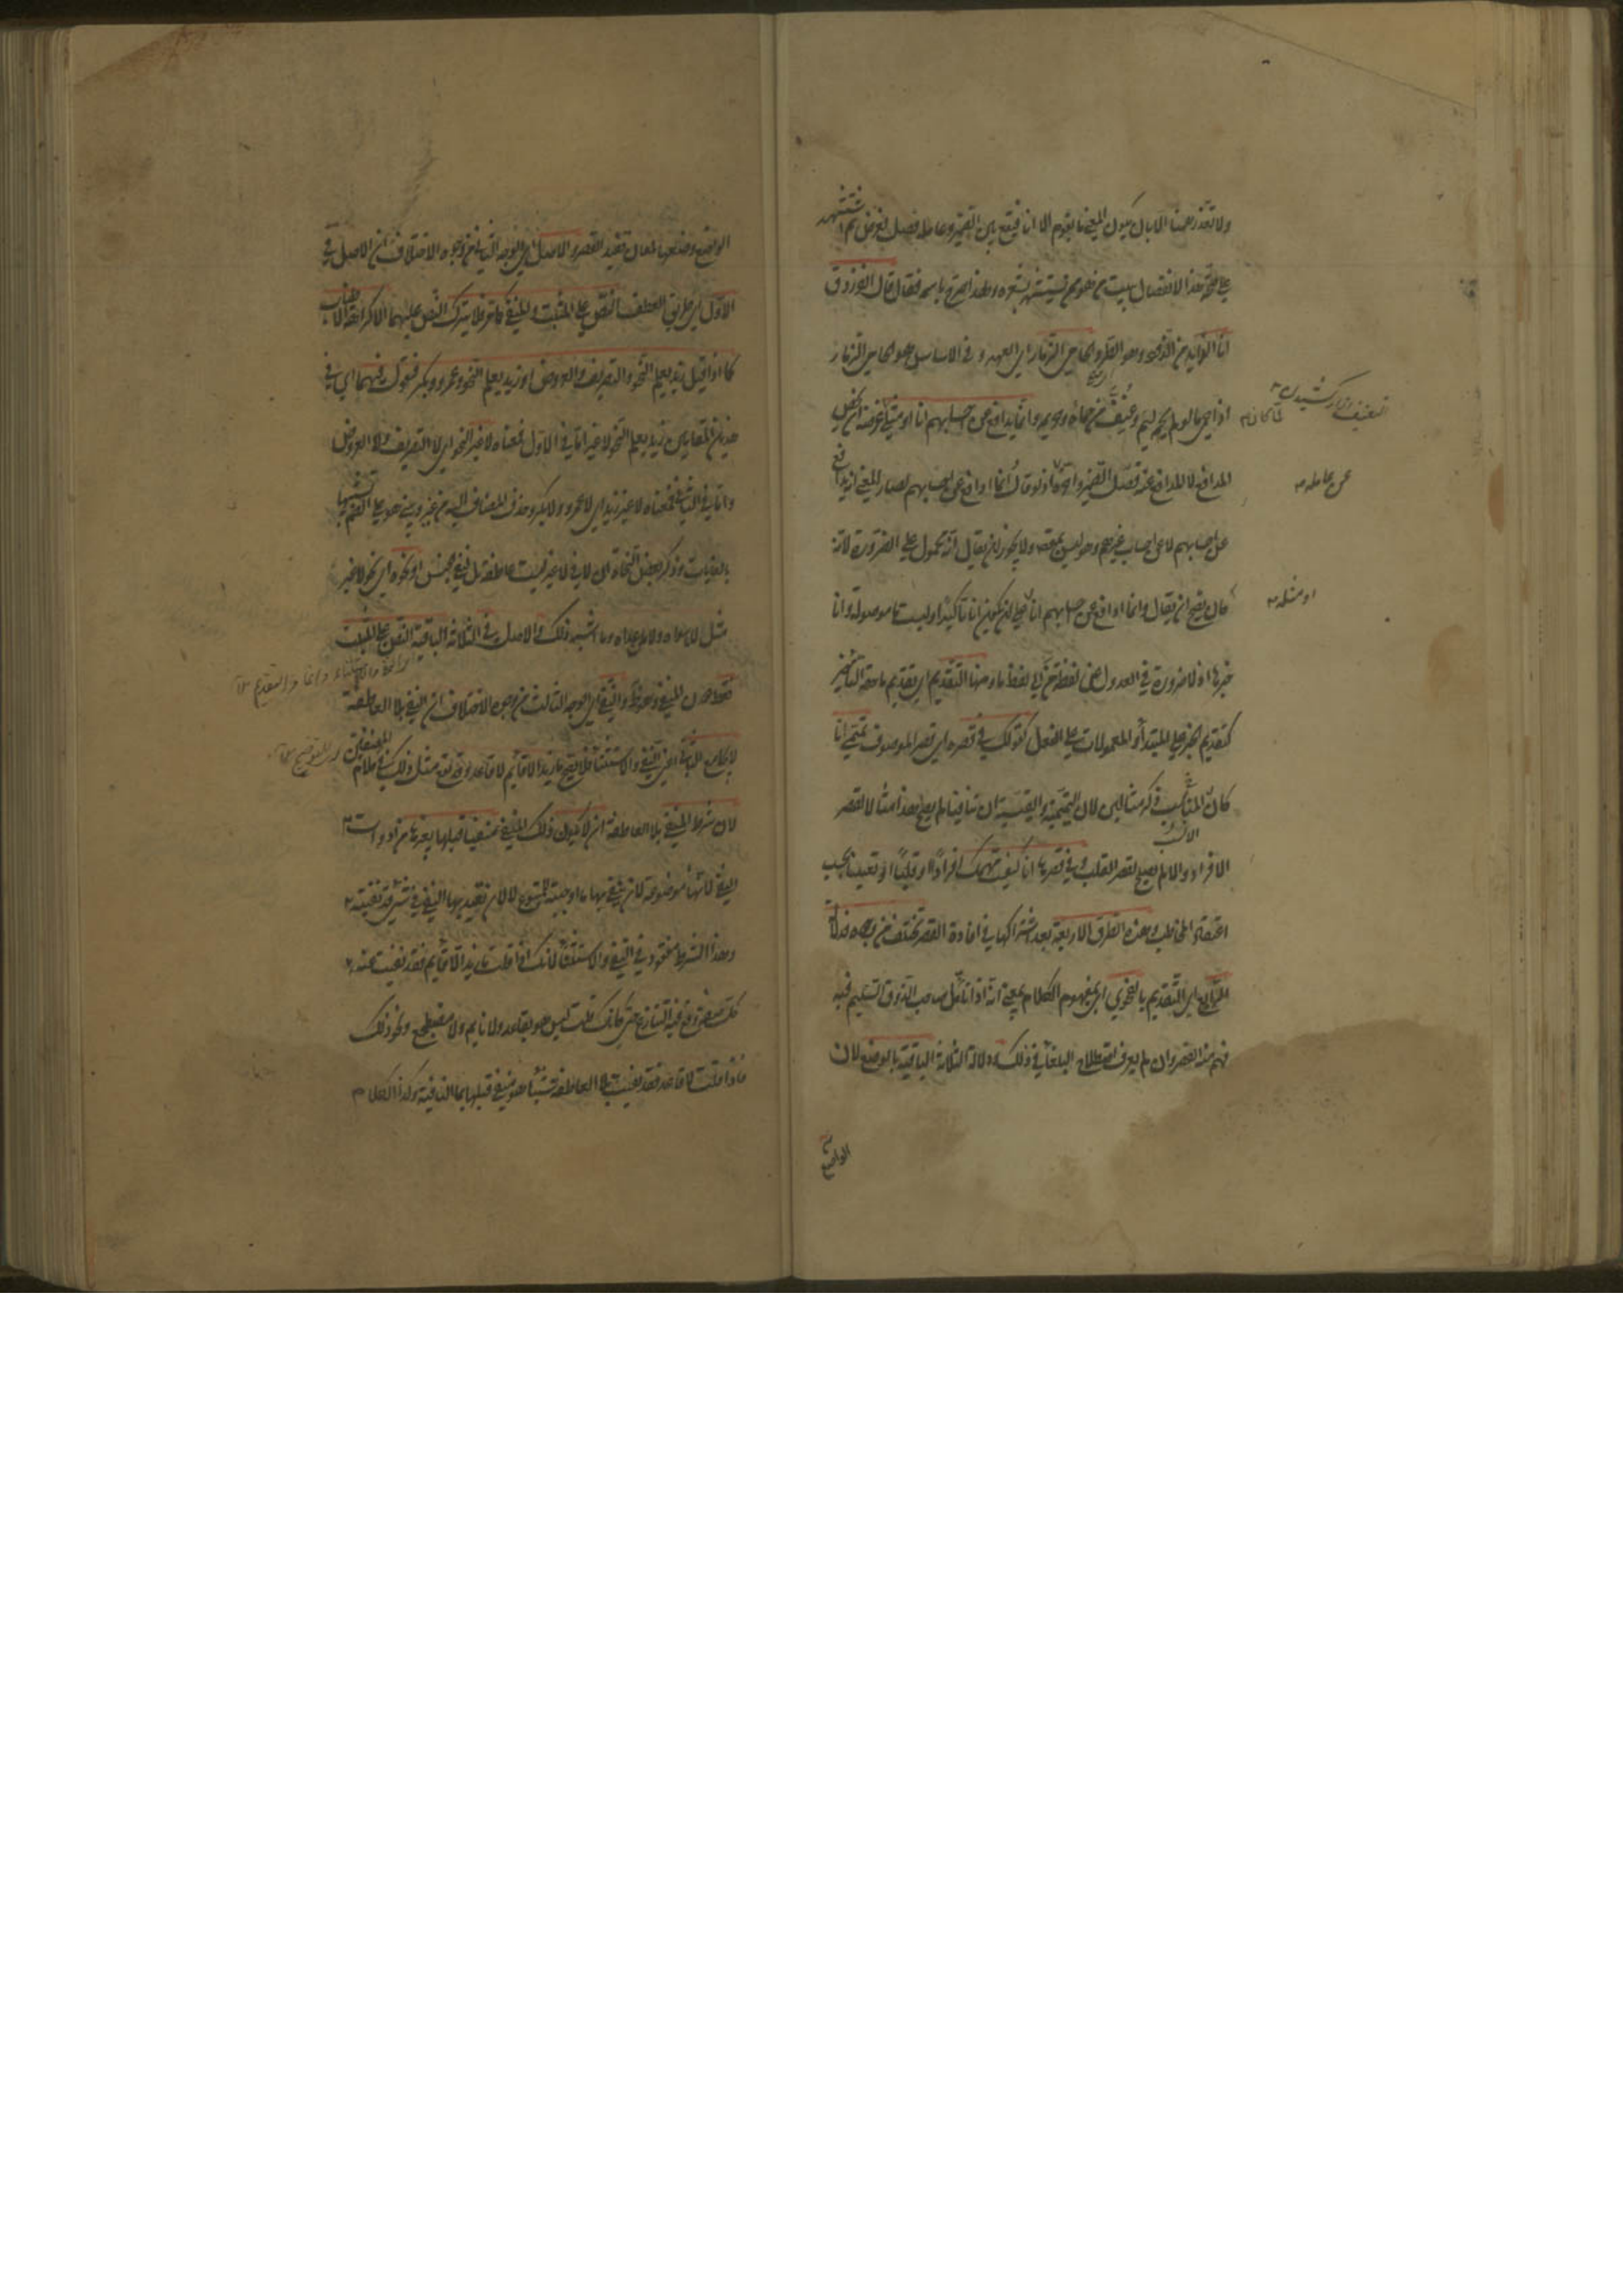 ولا تعذر ههنا الا بان يكون المعنى ما يقوم الا انا فيقع بين الضمير وعامله فصل لغرض ثم استشهد
على صحة هذا الانفصال ببيت من هو ممن يستشهد بشعره ولهذا صرح باسمه فقال قال الفرزدق
انا الذائد من الذود وهو الطرد الحامي الذمار اي العهد وفي الاساس هو الحامي الذمار
اذا حمى ما لو لم يحمه ليم وعنف من حماه وحريمه وانما يدافع عن احسابهم انا او مثلي لما كان غرضه ان يخص
المدافع لا المدافع عنه فصل الضمير واخره اذ لو قال انما ادافع عن احسابهم لصار المعنى انه يدافع
عن احسابهم لا عن احساب غيرهم وهو ليس بمقصوده ولا يجوز ان يقال انه محمول على الضرورة لانه
كان يصح ان يقال وانما ادافع عن احسابهم انا على ان يكون انا تاكيدا وليست ما موصولة وانا
خبرها اذ لا ضرورة في العدول عن لفظ من الى لفظ ما ومنها التقديم اي تقديم ما حقه التاخير
كتقديم الخبر على المبتدأ او المعمولات على الفعل كقولك في قصره اي قصر الموصوف تميمي انا
كان المناسب ذكر مثالين لان التميمية والقيسية ان تنافيا لم يصلح هذا مثالا لقصر
الافراد والا لم يصلح لقصر القلب وفي قصرها انا كفيت مهمك افرادا او قلبا او تعيينا بحسب
اعتقاد المخاطب وهذه الطرق الاربعة بعد اشتراكها في افادة القصر تختلف من وجوه فدلالة
الرابع اي التقديم بالفحوى اي بمفهوم الكلام بمعنى انه اذا تامل صاحب الذوق السليم فيه
فهم منه القصر وان لم يعرف اصطلاح البلغاء في ذلك ودلالة الثلاثة الباقية بالوضع لان
الواضع
عن عامله
او مثله
الواضع وضعها لمعان تفيد القصر والاصل اي الوجه الثاني من وجوه الاختلاف ان الاصل في
الاول اي طريق العطف النص على المثبت والمنفي كما مر فلا يترك النص عليهما الا كراهة الاطناب
كما اذا قيل زيد يعلم النحو والتصريف والعروض او زيد يعلم النحو وعمرو وبكر فتقول فيهما اي في
هذين المقامين زيد يعلم النحو لا غير اما في الاول فمعناه لا غير النحو اي لا التصريف ولا العروض
واما في الثاني فمعناه لا غير زيد اي لا عمرو ولا بكر وحذف المضاف اليه من غير وبني هو على الضم تشبيها
بالغايات وذكر بعض النحاة ان لا في لا غير ليست عاطفة بل لنفي الجنس او نحوه اي نحو لا غير
مثل لا ما سواه ولا من عداه وما اشبه ذلك والاصل في الثلاثة الباقية النص على المثبت
فقط دون المنفي وهو ظ والنفي اي الوجه الثالث من وجوه الاختلاف ان النفي بلا العاطفة
لا يجامع الثاني اعني النفي والاستثناء فلا يصح ما زيد الا قائم لا قاعد وقد يقع مثل ذلك في كلام المصنفين
لان شرط المنفي بلا العاطفة ان لا يكون ذلك المنفي منفيا قبلها بغيرها من ادوات
النفي لانها موضوعة لان ينفى بها ما اوجبته للمتبوع لا لان تعيد بها النفي في شيء قد نفيته
وهذا الشرط مفقود في النفي والاستثناء لانك اذا قلت ما زيد الا قائم فقد نفيت عنه
كل صفة وقع فيه التنازع حتى كانك قلت ليس هو بقاعد ولا نائم ولا مضطجع ونحو ذلك
فاذا قلت لا قاعد فقد نفيت بلا العاطفة شيئا هو منفي قبلها بما النافية وكذا الكلام